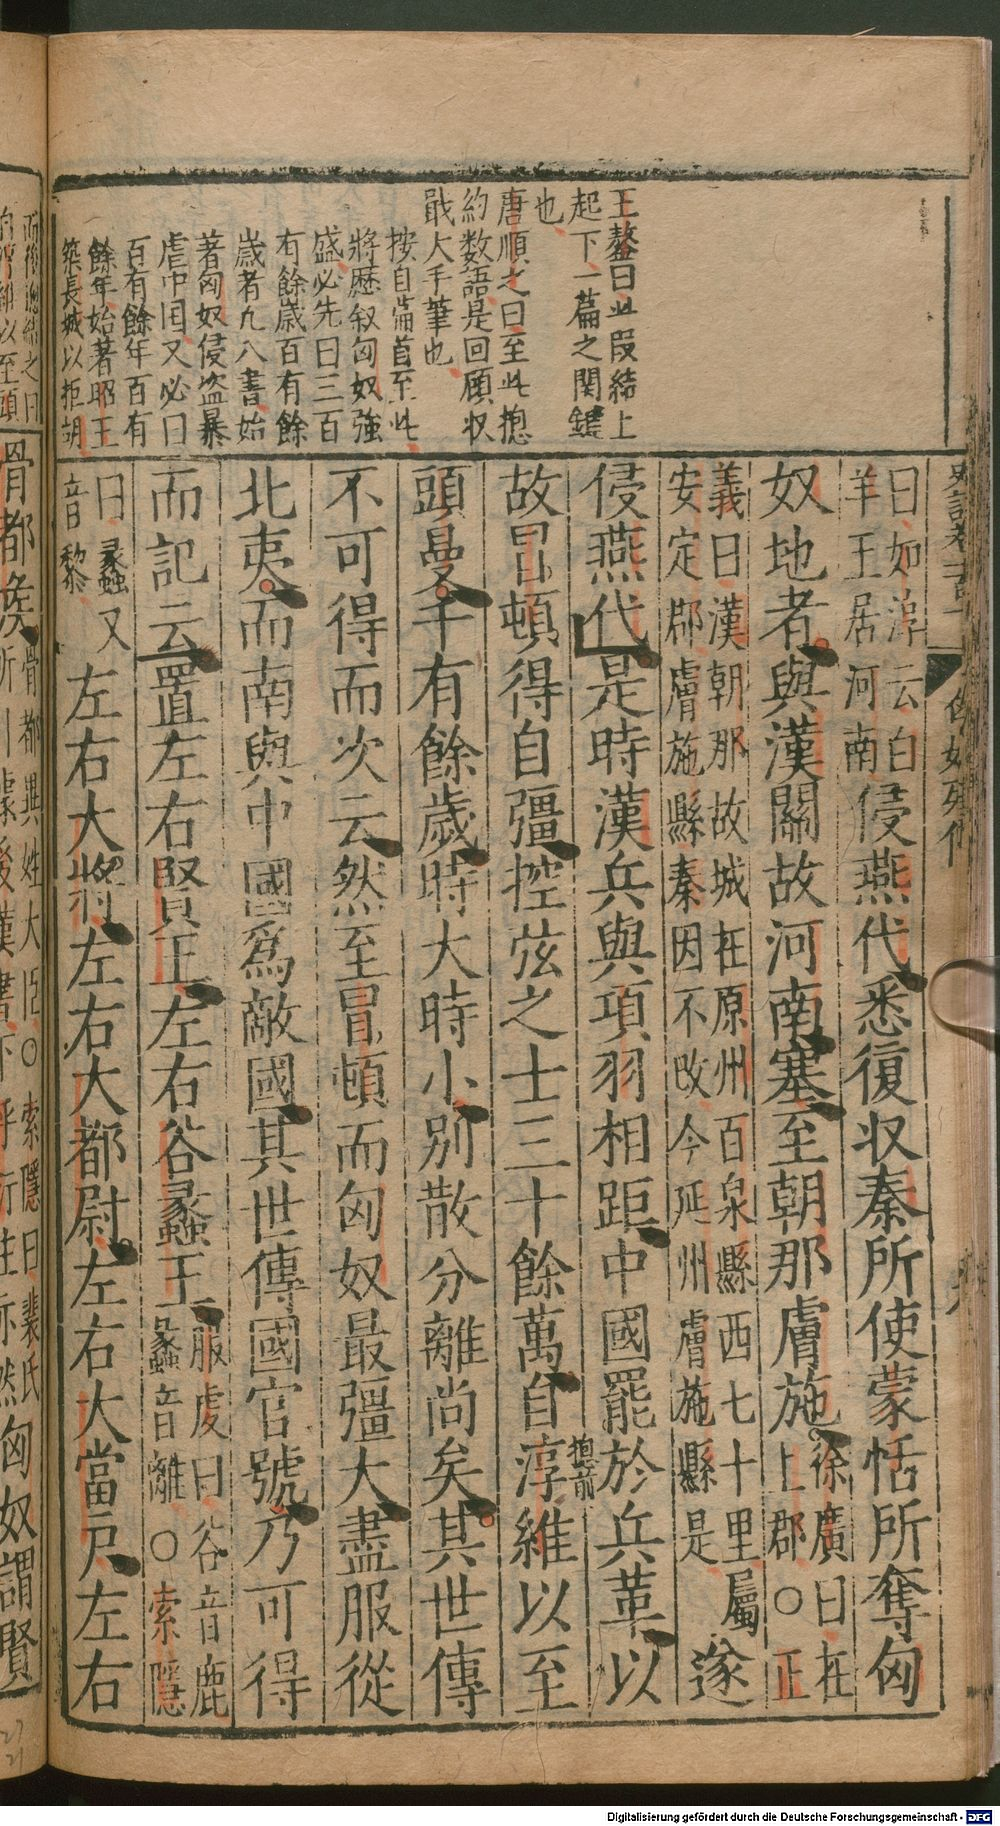 王鏊曰此段結上
起下一篇之関鍵
也
唐順之曰至此揔
約数語是回顧收
戢大手筆也
按自篇首至此
將歴叙匈奴強
盛必先曰三百
有餘歲百有餘
歲者凡八書始
著匈奴侵盗暴
虐中国又必曰
百有餘年百有
餘年始著昭王
築長城以拒胡
曰如淳云白
羊王居河南
侵燕代悉復収秦所使蒙恬所奪匈
奴地者與漢關故河南塞至朝那膚施
徐廣曰在
上郡○正
義曰漢朝那故城在原州百泉縣西七十里屬
安定郡膚施縣秦因不改今延州膚施縣是
遂
侵燕代是時漢兵與項羽相距中國罷於兵革以
故冒頓得自彊控弦之士三十餘萬自淳維以至
揔前
頭曼千有餘歲時大時小別散分離尚矣其世傳
不可得而次云然至冒頓而匈奴最彊大盡服從
北夷而南與中國爲敵國其世傳國官號乃可得
而記云置左右賢王左右谷蠡王
服虔曰谷音鹿
蠡音離○索隱
曰蠡又
音黎
左右大將左右大都尉左右大當户左右
骨都侯
骨都異姓大臣○索隱曰裴氏
匈奴謂賢
Digitalisierung gefördert durch die Deutsche Forschungsgemeinschaft - DFG